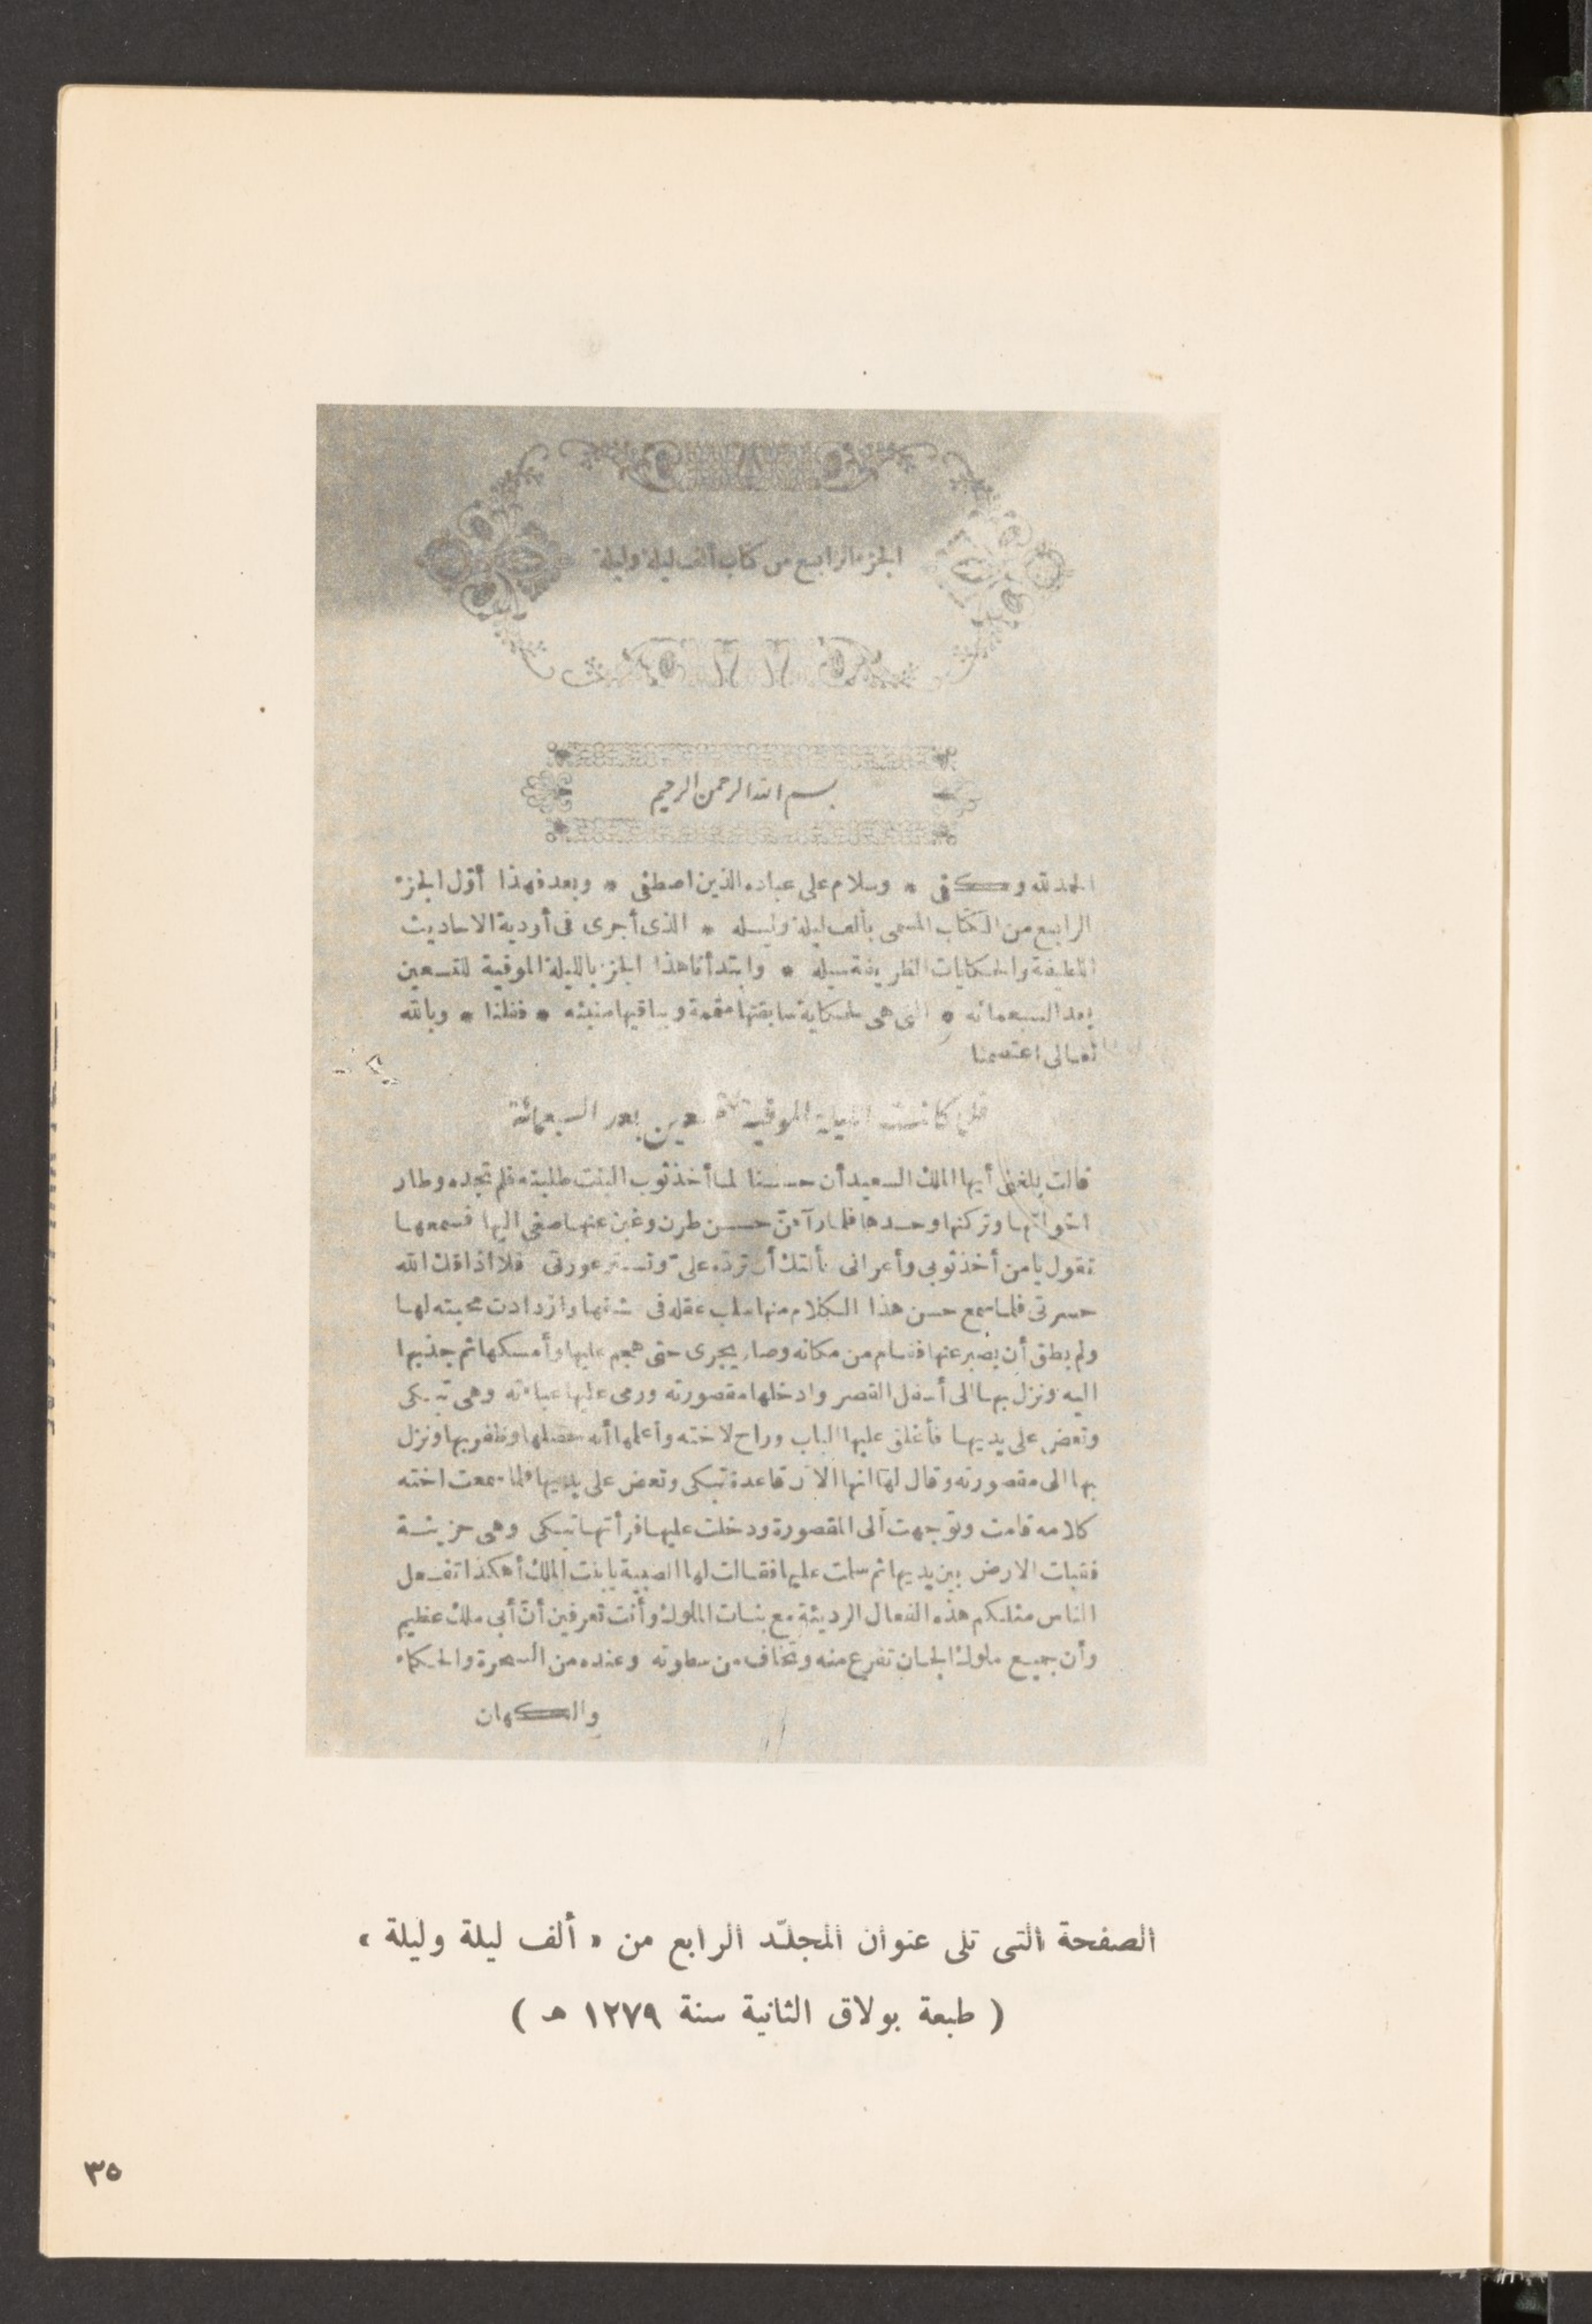 الجزء الرابع من كتاب ألف ليلة وليلة
بسم الله الرحمن الرحيم
الحمد لله وكفى * وسلام على عباده الذين اصطفى * وبعد فهذا أوّل الجزء
الرابع من الكتاب المسمى بألف ليلة وليله * الذى أجرى فى أودية الاحاديث
اللطيفة والحكايات الظريفة سيله * وابتدأنا هذا الجزء بالليلة الموفية للتسعين
بعد السبعمائه * التى هى لحكاية سابقتها متممة وباقيها منبئه * فقلنا * وبالله
تعالى اعتصمنا
كانت الليلة الموفية بعد السبعمائة
قالت بلغنى أيها الملك السعيد أن حسنا لما أخذ ثوب البنت طلبته فلم تجده وطار
اخواتها وتركنها وحدها فلما رآهنّ حسن طرن وغبن عنها صغى اليها فسمعها
تقول يا من أخذ ثوبى وأعرانى سألتك أن تردّه علىّ وتستر عورتى فلا أذاقك الله
حسرتى فلما سمع حسن هذا الكلام منها سلب عقله فى عشقها وازدادت محبته لها
ولم يطق أن يصبر عنها فقام من مكانه وصار يجرى حتى هجم عليها وأمسكها ثم جذبها
اليه ونزل بها الى أسفل القصر وادخلها مقصورته ورمى عليها عباءته وهى تبكى
وتعض على يديها فأغلق عليها الباب وراح لاخته وأعلمها أنه حصلها وظفر بها ونزل
بها الى مقصورته وقال لها انها الآن قاعدة تبكى وتعض على يديها فلما سمعت اخته
كلامه قامت وتوجهت الى المقصورة ودخلت عليها فرأتها تبكى وهى حزينة
فقبلت الارض بين يديها ثم سلمت عليها فقالت لها الصبية يا بنت الملك أهكذا تفعل
الناس مثلكم هذه الفعال الرديئة مع بنات الملوك وأنت تعرفين أنّ أبى ملك عظيم
وأن جميع ملوك الجان تفزع منه وتخاف من سطوته وعنده من السحرة والحكماء
والكهان
الصفحة التى تلى عنوان المجلّد الرابع من « ألف ليلة وليلة »
( طبعة بولاق الثانية سنة ١٢٧٩ هـ )
٣٥